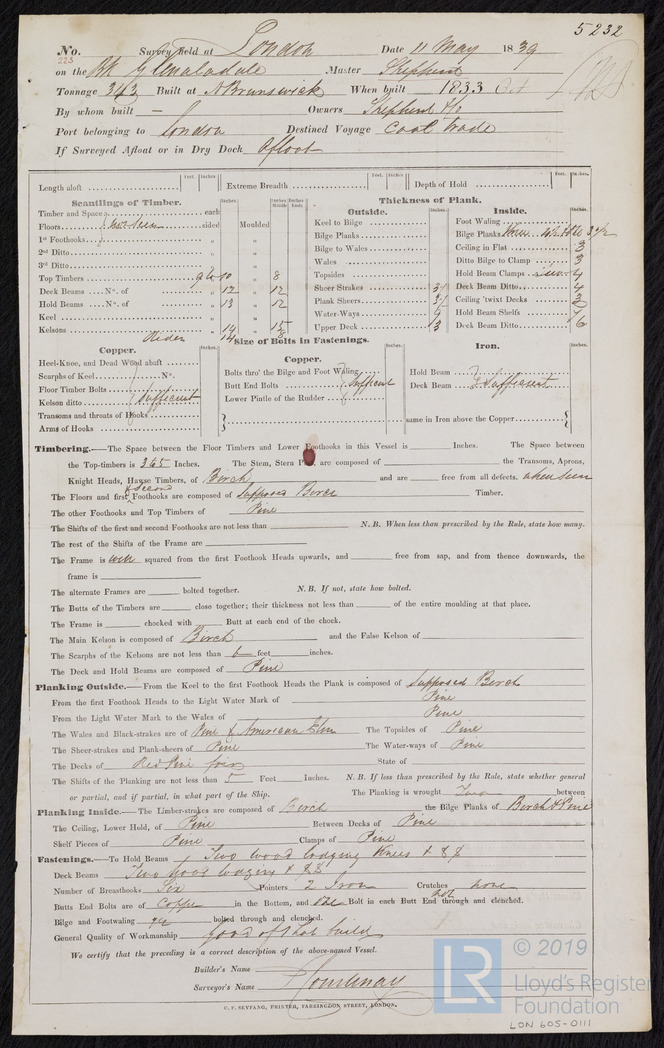 5232
No. 223 Survey held at London Date 11 May 1839
on the Bk Glenaladale Master Shepherd
Tonnage 343 Built at N Brunswick When built 1833 Oct
By whom built — Owners Shepherd & Co
Port belonging to London Destined Voyage Coal trade
If Surveyed Afloat or in Dry Dock Afloat
Length aloft Feet. Inches Extreme Breadth Feet. Inches Depth of Hold Feet. Inches.
Scantlings of Timber.
Timber and Space each
Floors not seen sided Moulded
1st Foothooks
2nd Ditto
3rd Ditto
Top Timbers 9 to 10 8
Deck Beams No. of 12 12
Hold Beams No. of 13 12
Keel
Kelsons 14 15
Rider 14
Thickness of Plank.
Outside.
Keel to Bilge
Bilge Planks
Bilge to Wales
Wales
Topsides
Sheer Strakes 3½
Plank Sheers 3½
Water-Ways
Upper Deck 3
Inside.
Foot Waling
Bilge Planks
Ceiling in Flat 3
Ditto Bilge to Clamp 3
Hold Beam Clamps 4
Deck Beam Ditto 4
Ceiling 'twixt Decks 3
Hold Beam Shelfs
Deck Beam Ditto 6
Size of Bolts in Fastenings.
Copper.
Heel-Knee, and Dead Wood abaft
Scarphs of Keel No.
Floor Timber Bolts
Kelson ditto Sufficient
Transoms and throats of Hooks
Arms of Hooks
Copper.
Bolts thro' the Bilge and Foot Waling
Butt End Bolts Sufficient
Lower Pintle of the Rudder
Iron.
Hold Beam
Deck Beam Sufficient
same in Iron above the Copper
Timbering.—The Space between the Floor Timbers and Lower Foothooks in this Vessel is Inches. The Space between
the Top-timbers is 3 to 5 Inches. The Stem, Stern Post, are composed of the Transoms, Aprons,
Knight Heads, Hawse Timbers, of Birch and are free from all defects. when seen
The Floors and first & second Foothooks are composed of Supposed Birch Timber.
The other Foothooks and Top Timbers of Pine
The Shifts of the first and second Foothooks are not less than N. B. When less than prescribed by the Rule, state how many.
The rest of the Shifts of the Frame are
The Frame is well squared from the first Foothook Heads upwards, and free from sap, and from thence downwards, the
frame is
The alternate Frames are bolted together. N. B. If not, state how bolted.
The Butts of the Timbers are close together; their thickness not less than of the entire moulding at that place.
The Frame is chocked with Butt at each end of the chock.
The Main Kelson is composed of Birch and the False Kelson of
The Scarphs of the Kelsons are not less than 6 feet inches.
The Deck and Hold Beams are composed of Pine
Planking Outside.—From the Keel to the first Foothook Heads the Plank is composed of Supposed Birch
From the first Foothook Heads to the Light Water Mark of Pine
From the Light Water Mark to the Wales of Pine
The Wales and Black-strakes are of Pine & American Elm The Topsides of Pine
The Sheer-strakes and Plank-sheers of Pine The Water-ways of Pine
The Decks of Red Pine State of fair
The Shifts of the Planking are not less than 5 Feet Inches. N. B. If less than prescribed by the Rule, state whether general
or partial, and if partial, in what part of the Ship. The Planking is wrought Two between
Planking Inside.—The Limber-strakes are composed of Birch the Bilge Planks of Birch & Pine
The Ceiling, Lower Hold, of Pine Between Decks of Pine
Shelf Pieces of Pine Clamps of Pine
Fastenings.—To Hold Beams Two wood lodging Knees &
Deck Beams Two wood lodging &
Number of Breasthooks Six Pointers 2 Iron Crutches none
Butts End Bolts are of Copper in the Bottom, and one Bolt in each Butt End not through and clenched.
Bilge and Footwaling bolted through and clenched.
General Quality of Workmanship good of that build
We certify that the preceding is a correct description of the above-named Vessel.
Builder's Name
Surveyor's Name Courtenay
C. F. SEYFANG, PRINTER, FARRINGDON STREET, LONDON.
LR © 2019
Lloyd's Register
Foundation
LON 605-0111